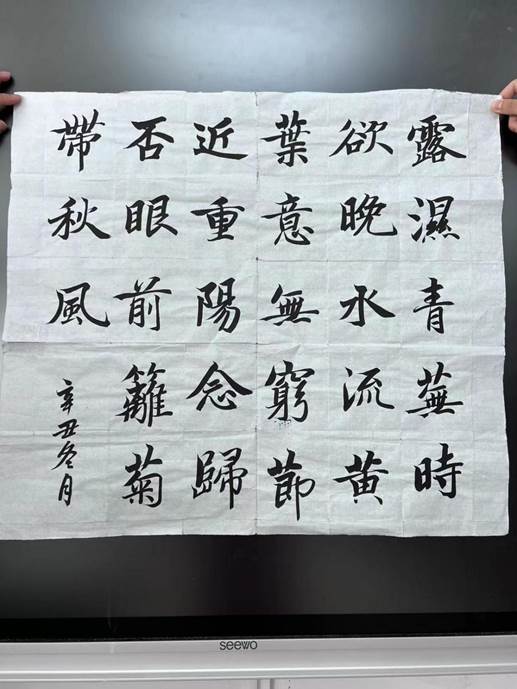 露濕青蕪時
欲晚水流黃
葉意無窮節
近重陽念歸
否眼前籬菊
帶秋風
辛丑冬月
seewo